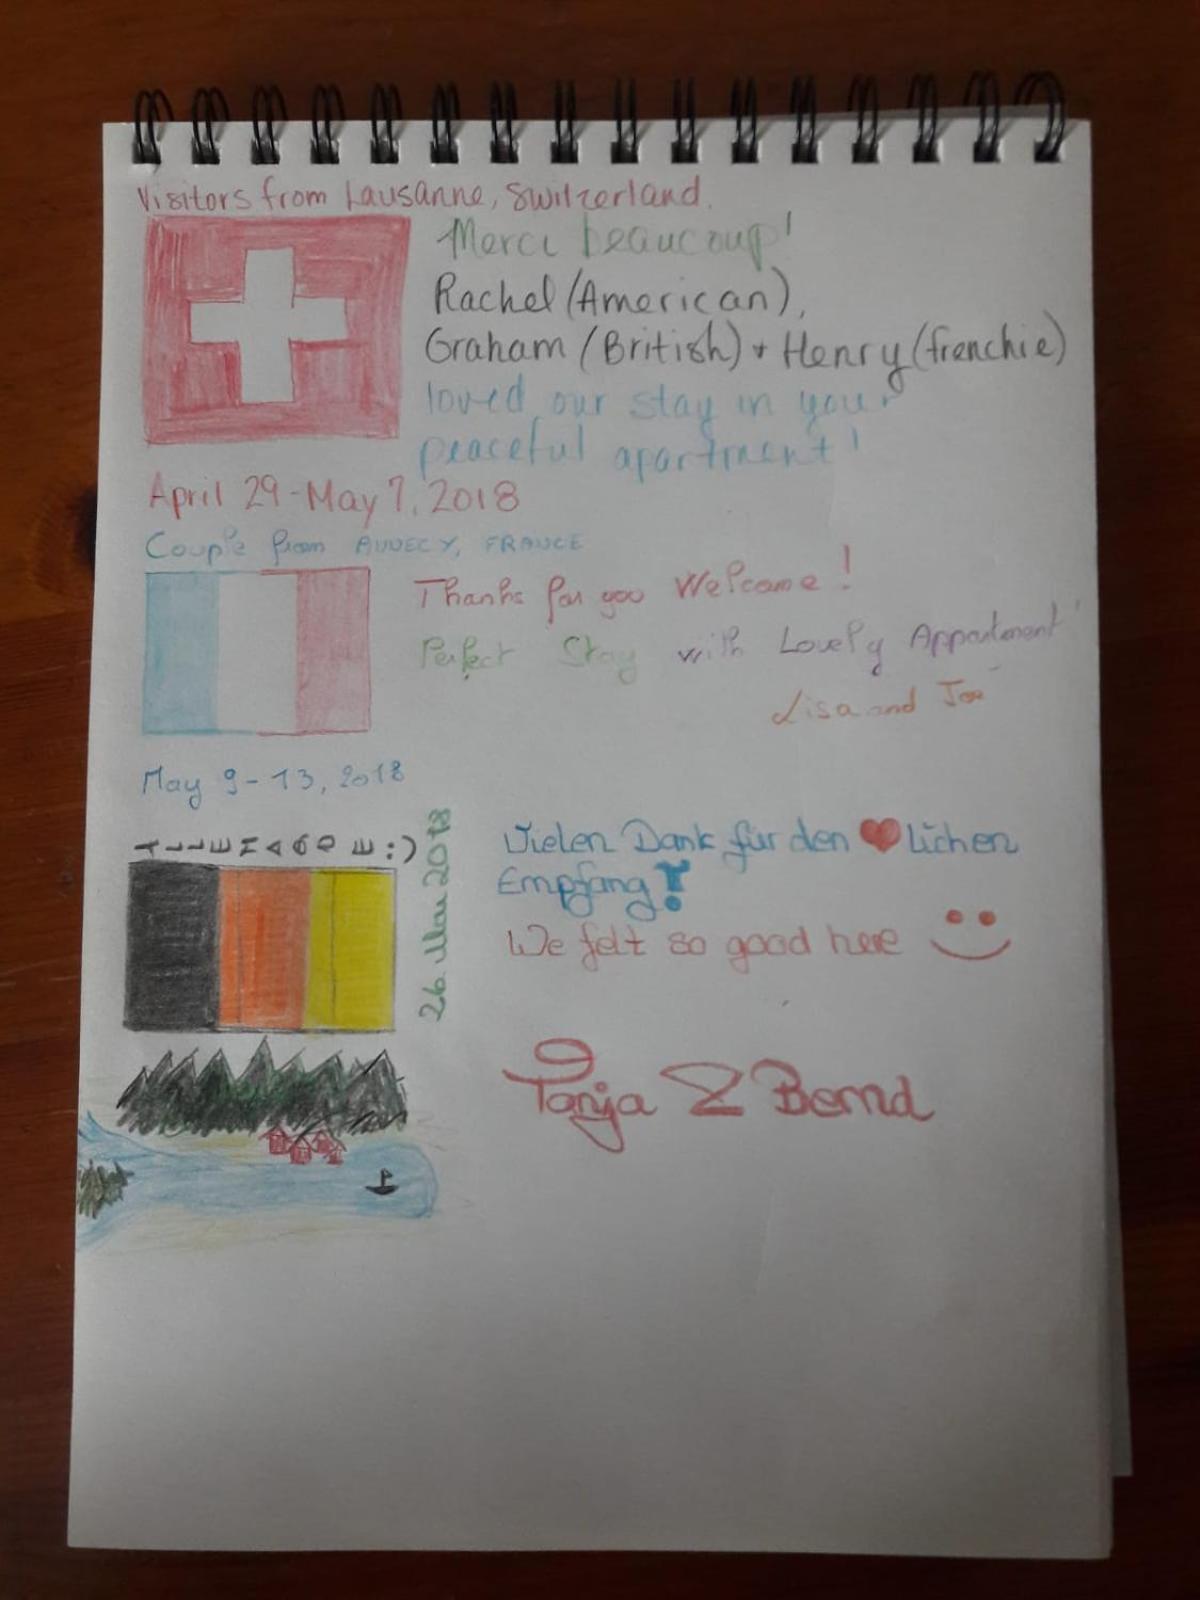 Visitors from Lausanne, Switzerland.
Merci beaucoup!
Rachel (American),
Graham (British) + Henry (frenchie)
loved our stay in your
peaceful apartment!
April 29 - May 7, 2018
Couple from ANNECY, FRANCE
Thanks for you Welcome!
Perfect Stay with Lovely Appartement
Lisa and Joe
May 9 - 13, 2018
ALLEMAGNE :)
26. Mai 2018
Vielen Dank für den ❤lichen
Empfang!
We felt so good here
Tanja & Bernd